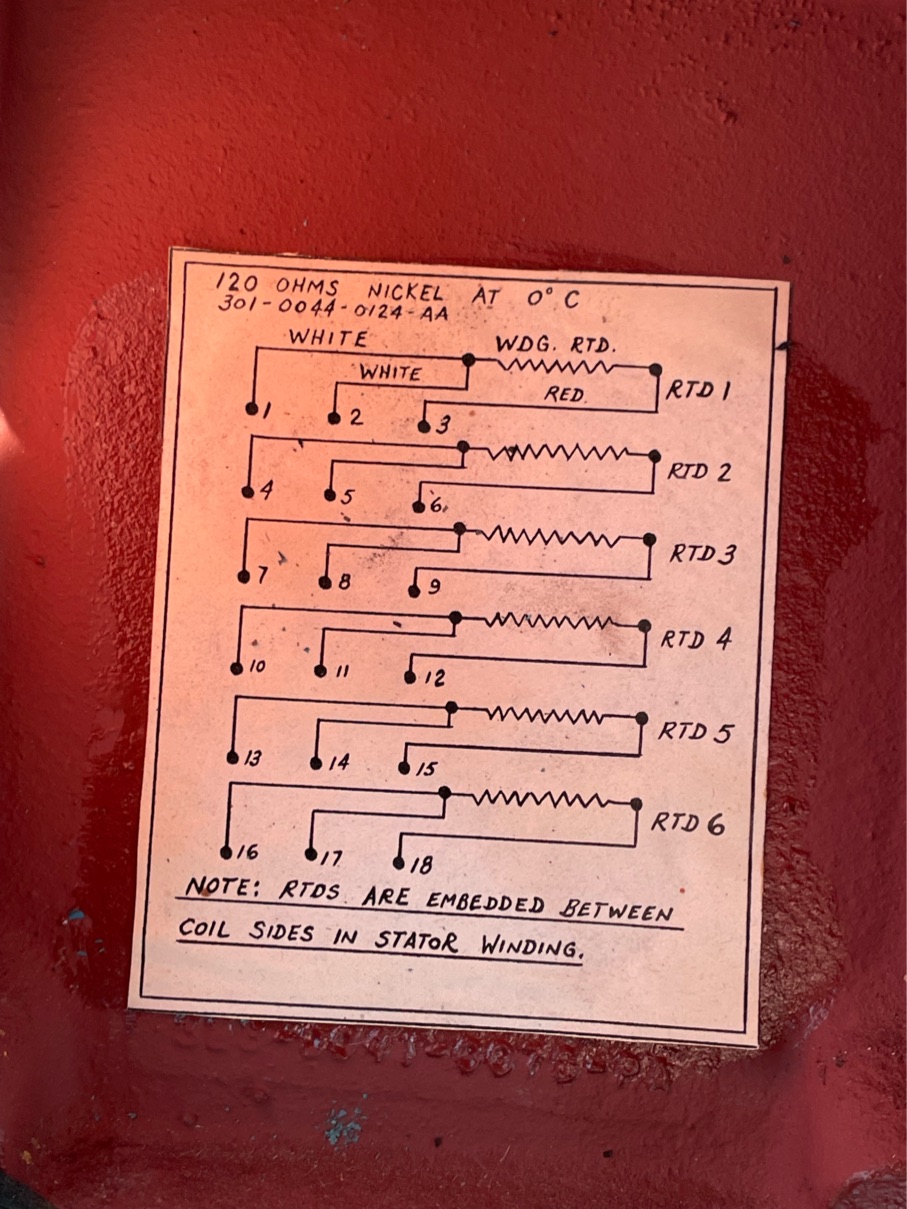 120 OHMS NICKEL AT 0° C
301-0044-0124-AA
WHITE WDG. RTD.
WHITE RED. RTD 1
1 2 3
RTD 2
4 5 6
RTD 3
7 8 9
RTD 4
10 11 12
RTD 5
13 14 15
RTD 6
16 17 18
NOTE: RTDS ARE EMBEDDED BETWEEN
COIL SIDES IN STATOR WINDING.